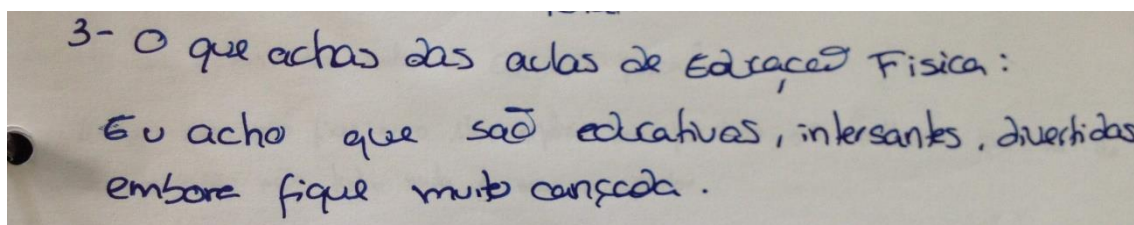 3- O que achas das aulas de Educação Fisica:
Eu acho que são educativas, intersantes, divertidas
embora fique muito cansçada.